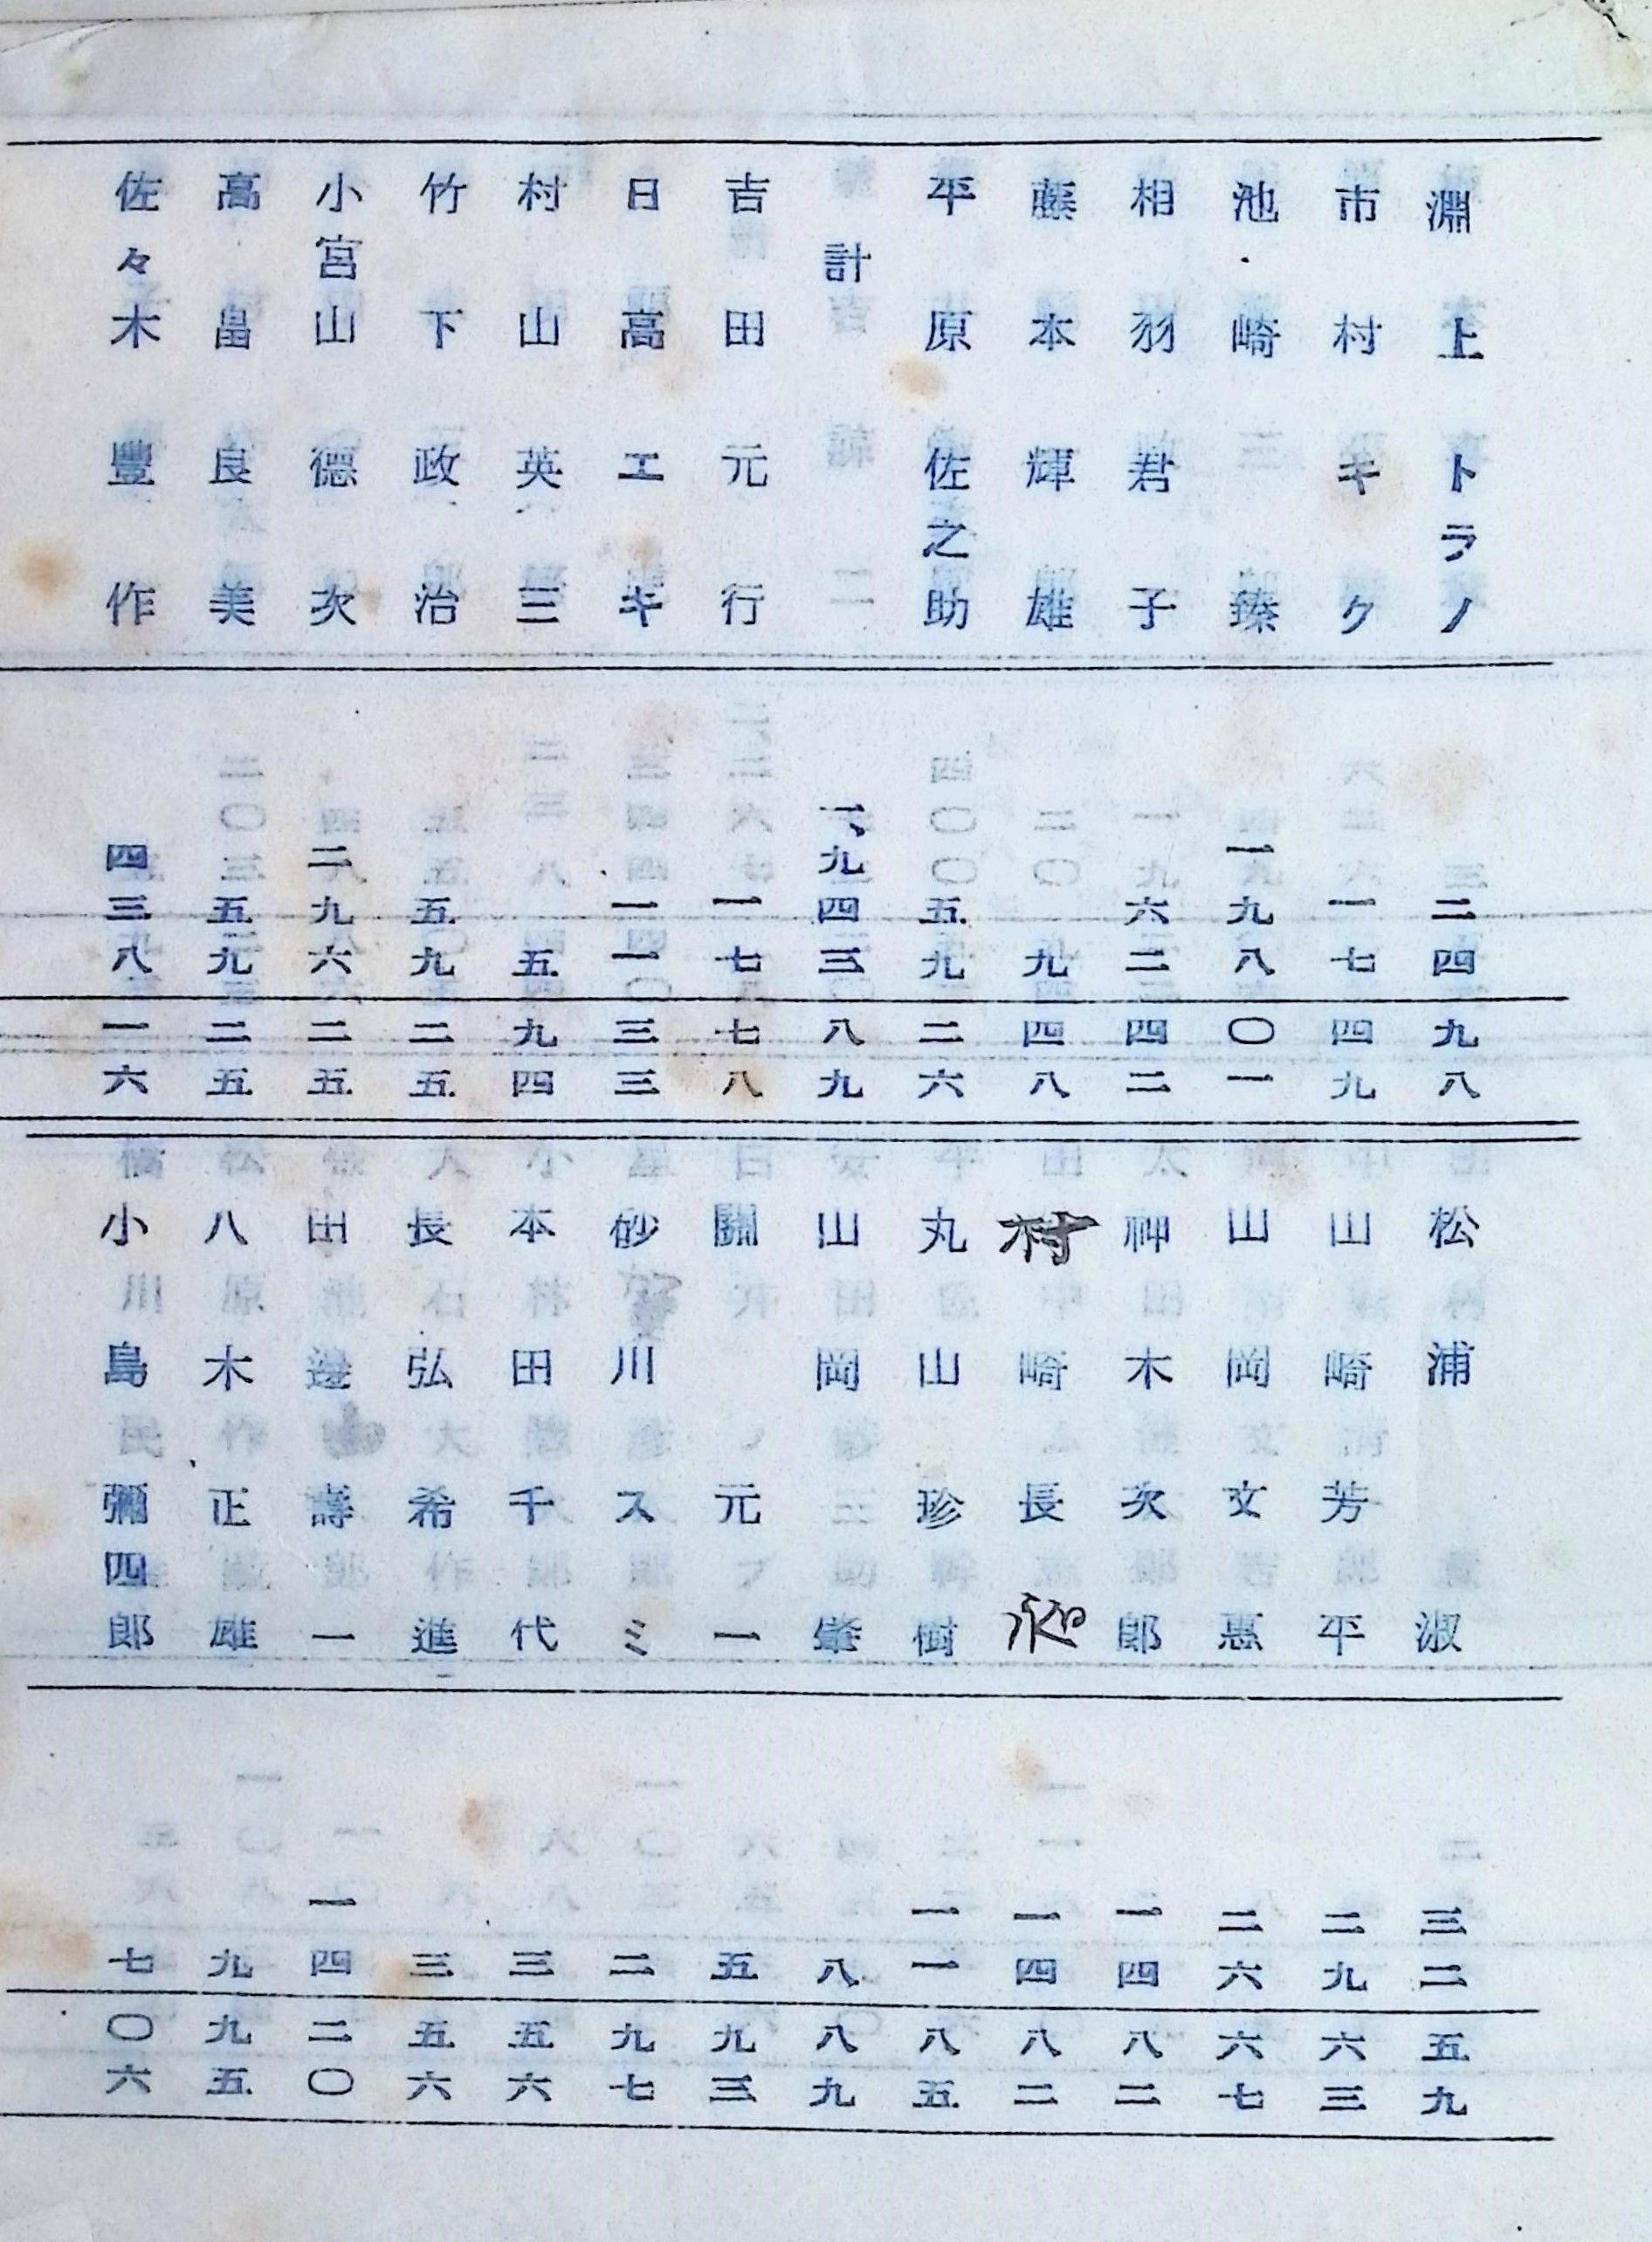 淵上トラノ 二四九八
市村キク 一七四九
池崎臻 一九八〇一
相羽君子 六二四二
藤本輝雄 九四八
平原佐之助 五九二六
計 一、九四三八九
吉田元行 一七七八
日高エキ 一一三三
村山英三 五九四
竹下政治 五九二五
小宮山德次 二九六二五
高畠良美 五九二五
佐々木豐作 四三八一六
松浦淑 三二五九
山崎芳平 二九六三
山岡文惠 二六六七
神木次郎 一四八二
村崎長和 一四八二
丸山珍樹 一一八五
山岡肇 八八九
關元一 五九三
砂川スミ 二九七
本田千代 三五六
長弘希進 三五六
田邊壽一 一四二〇
八木正雄 九九五
小島彌四郎 七〇六